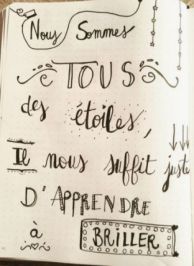 Nous Sommes
TOUS
des étoiles,
Il nous suffit juste
D'APPRENDRE
à
BRILLER